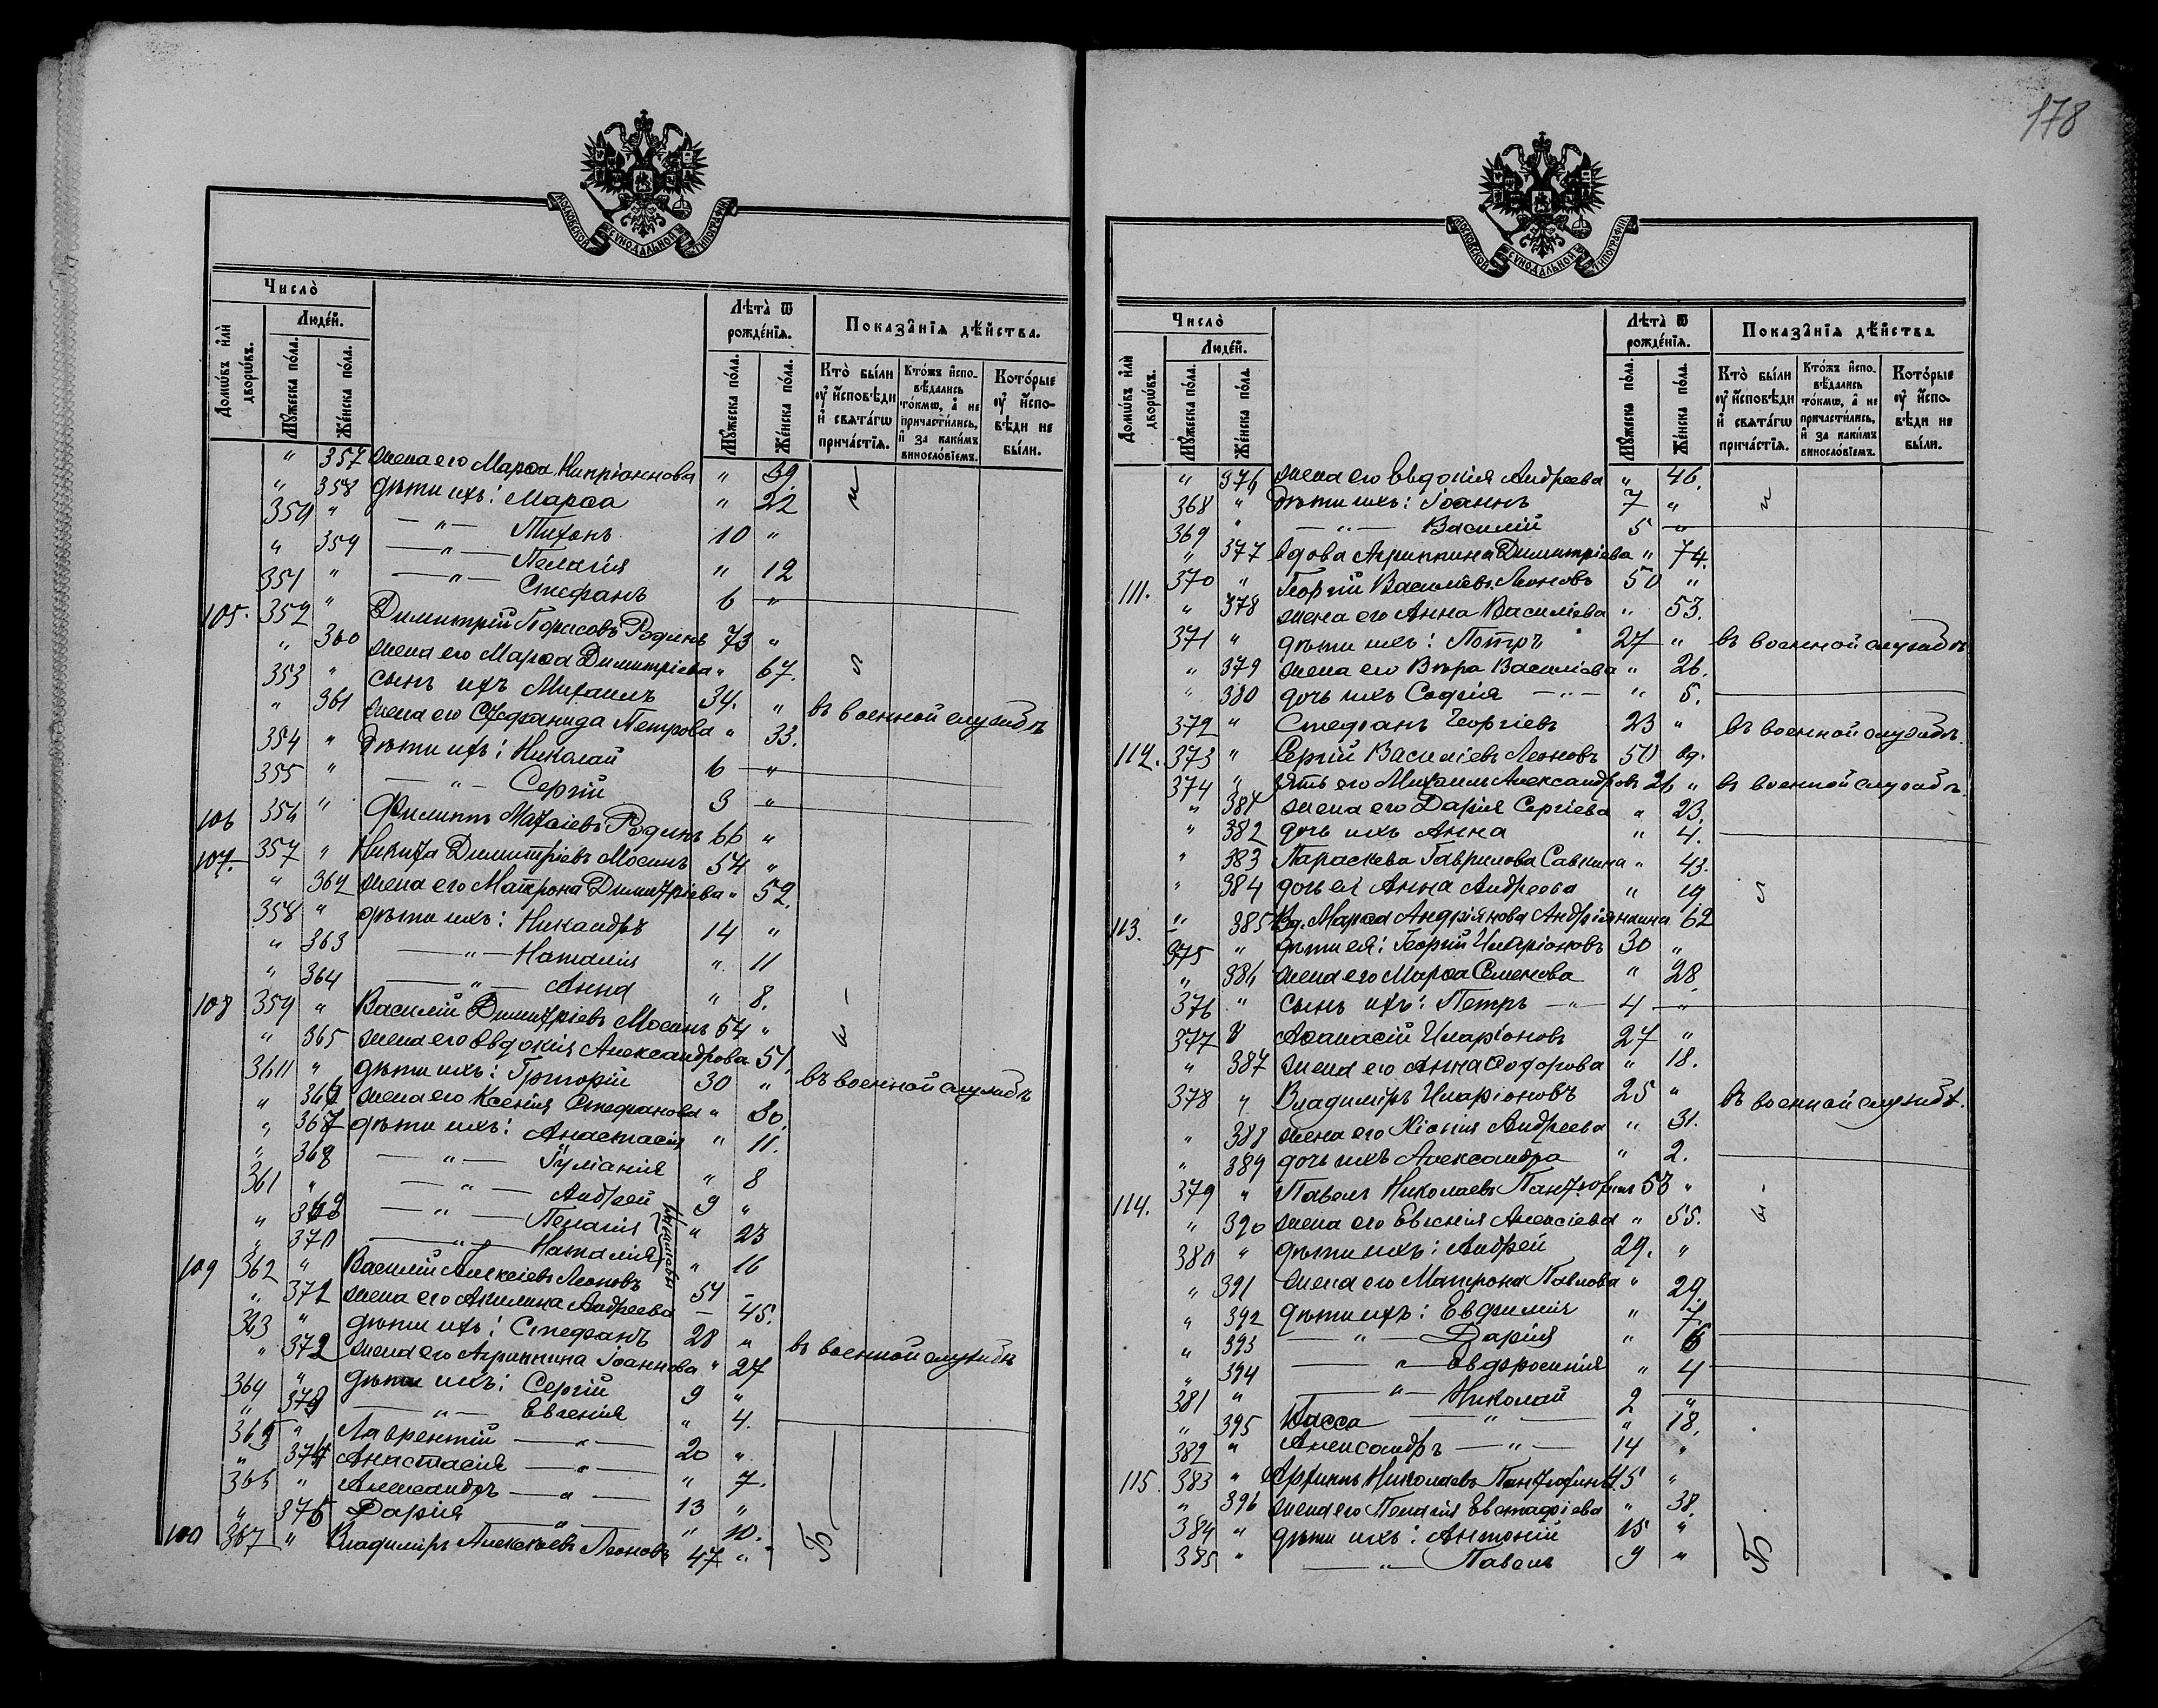 178
МОСКОВСКОЙ СѴНОДАЛЬНОЙ ТИПОГРАФІИ
Число̀
Людє́й.
Лѣта̀ ѿ рожде́нїѧ.
Показа̑нїѧ дѣ́йства.
Домѡ́въ и҆лѝ дворѡ́въ.
Мꙋ́жеска по́ла.
Же́нска по́ла.
Мꙋ́жеска по́ла.
Же́нска по́ла.
Кто̀ бы́ли ᲂу҆ и҆́сповѣди и҆ свѧта́гѡ прича́стїѧ.
Кто́жъ и҆сповѣ́дались то́кмѡ, а҆ не причасти́лись, и҆ за каки́мъ виносло́вїемъ.
Кото́рые ᲂу҆ и҆́сповѣди не бы́ли.
" 357 жена его Марѳа Кипріаннова " 39.
" 358 дѣти ихъ: Марѳа " 22
350 " — " — Тихонъ 10 "
" 359 — " — Пелагія " 12
351 " — " — Стефанъ 6 "
105. 352 " Димитрій Борисовъ Родинъ 73 "
" 360 жена его Марѳа Димитріева " 67.
353 " сынъ ихъ Михаилъ 34. " въ военной службѣ
" 361 жена его Стефанида Петрова " 33.
354 " Дѣти ихъ: Николай 6 "
355 " — " — Сергій 3 "
106 356 " Филиппъ Матѳіевъ Родинъ 66 "
107. 357 " Никита Димитріевъ Мосинъ 54 "
" 362 жена его Матрона Димитріева " 52.
358 " дѣти ихъ: Никандръ 14 "
" 363 — " — Наталія " 11
" 364 — " — Анна " 8.
108 359 " Василій Димитріевъ Мосинъ 54 "
" 365 жена его Евдокія Александрова 51.
360 " дѣти ихъ: Григорій 30 " въ военной службѣ
" 366 жена его Ксенія Стефанова " 30.
" 367 дѣти ихъ: Анастасія " 11.
" 368 — " — Іуліанія " 8
361 " — " — Андрей 9 "
" 369 — " — Пелагія " 23
" 370 — " — Наталія " 16
109 362 " Василій Алексіевъ Леоновъ 54 –
" 371 жена его Акилина Андреева – 45.
363 " дѣти ихъ: Стефанъ 28 " въ военной службѣ
" 372 жена его Агриппина Іоаннова " 27
364 " дѣти ихъ: Сергій 9 "
" 373 — " — Евгенія " 4.
365 " Лаврентій — " — 20 "
" 374 Анастасія — " — " 7.
366 " Александръ — " — 13 "
" 375 Дарія — " — " 10.
367 " Владиміръ Алексіевъ Леоновъ 47 "
Б
Число̀
Людє́й.
Лѣта̀ ѿ рожде́нїѧ.
Показа̑нїѧ дѣ́йства
Домѡ́въ и҆лѝ дворѡ́въ.
Мꙋ́жеска по́ла.
Же́нска по́ла.
Мꙋ́жеска по́ла.
Же́нска по́ла.
Кто̀ бы́ли ᲂу҆ и҆́сповѣди и҆ свѧта́гѡ прича́стїѧ.
Кто́жъ и҆сповѣ́дались то́кмѡ, а҆ не причасти́лись, и҆ за каки́мъ виносло́вїемъ.
Кото́рые ᲂу҆ и҆́сповѣди не бы́ли.
" 376 жена его Евдокія Андреева " 46.
368 " дѣти ихъ: Іоаннъ 7 "
369 " — " — Василій 5 "
" 377 вдова Агриппина Димитріева " 74.
111. 370 " Георгій Василіевъ Леоновъ 50 "
" 378 жена его Анна Василіева " 53.
371 " дѣти ихъ: Петръ 27 " въ военной службѣ
" 379 жена его Вѣра Василіева " 26.
" 380 дочь ихъ Софія — " — " 5.
372 " Стефанъ Георгіевъ 23 " въ военной службѣ.
112. 373 " Сергій Василіевъ Леоновъ 50 вд.
374 " зять его Михаилъ Александровъ 26 " въ военной службѣ.
" 381 жена его Дарія Сергіева " 23.
" 382 дочь ихъ Анна " 4.
" 383 Параскева Гаврилова Савкина " 43.
" 384 дочь ея Анна Андреева " 19
113. " 385 Вд. Марѳа Андріянова Андріянкина 62
375 " дѣти ея: Георгій Иларіоновъ 30 "
" 386 жена его Марѳа Семенова " 28.
376 " сынъ ихъ: Петръ — " — 4 "
377 " Аѳанасій Иларіоновъ 27 "
" 387 жена его Анна Ѳеодорова " 18.
378 " Владиміръ Иларіоновъ 25 " въ военной службѣ.
" 388 жена его Хіонія Андреева " 31.
" 389 дочь ихъ Александра " 2.
114. 379 " Павелъ Николаевъ Панфофинъ 53 "
" 390 жена его Евгенія Алексіева " 55.
380 " дѣти ихъ: Андрей 29. "
" 391 жена его Матрона Павлова " 29.
" 392 дѣти ихъ: Евфимія " 7
" 393 — " — Дарія " 6
" 394 — " — Евфросинія " 4
381 " — " — Николай 2 "
" 395 Васса — " — " 18.
382 " Александръ — " — 14 "
115. 383 " Николаевъ 45 "
" 396 жена его Пелагія Евстафіева " 38.
384 " дѣти ихъ: Антоній 15 "
385 " — " — Павелъ 9 "
Б